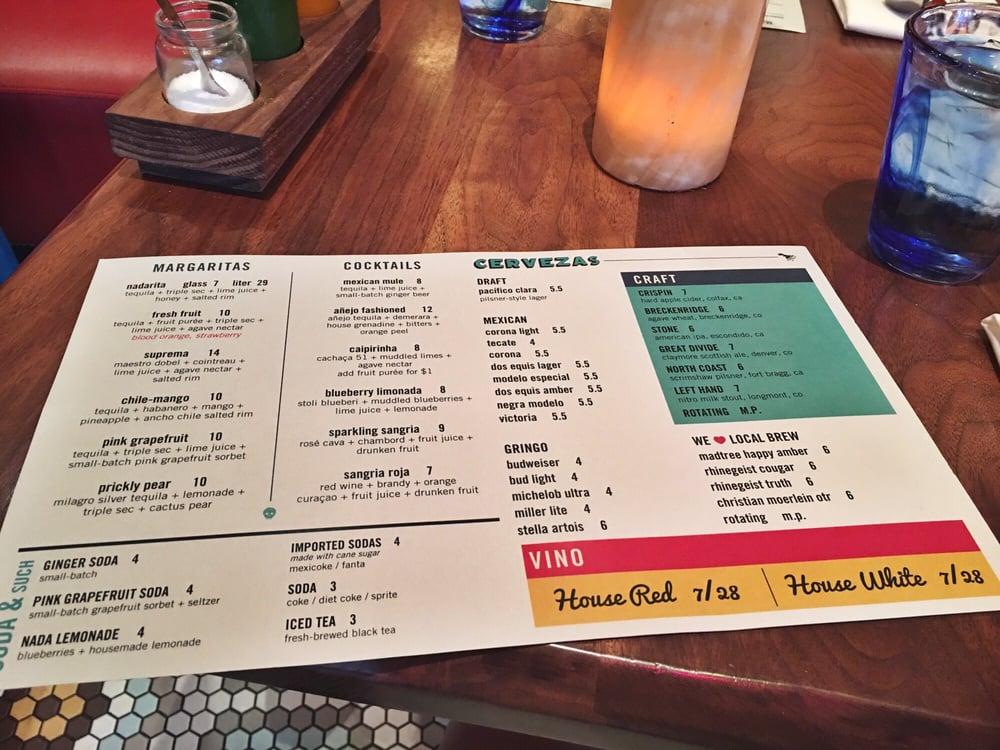 MARGARITAS
nadarita glass 7 liter 29
tequila + triple sec + lime juice +
honey + salted rim
fresh fruit 10
tequila + fruit purée + triple sec +
lime juice + agave nectar
blood orange, strawberry
suprema 14
maestro dobel + cointreau +
lime juice + agave nectar +
salted rim
chile-mango 10
tequila + habanero + mango +
pineapple + ancho chile salted rim
pink grapefruit 10
tequila + triple sec + lime juice +
small-batch pink grapefruit sorbet
prickly pear 10
milagro silver tequila + lemonade +
triple sec + cactus pear
COCKTAILS
mexican mule 8
tequila + lime juice +
small-batch ginger beer
añejo fashioned 12
añejo tequila + demerara +
house grenadine + bitters +
orange peel
caipirinha 8
cachaça 51 + muddled limes +
agave nectar
add fruit purée for $1
blueberry limonada 8
stoli blueberi + muddled blueberries +
lime juice + lemonade
sparkling sangria 9
rosé cava + chambord + fruit juice +
drunken fruit
sangria roja 7
red wine + brandy + orange
curaçao + fruit juice + drunken fruit
CERVEZAS
DRAFT
pacifico clara 5.5
pilsner-style lager
MEXICAN
corona light 5.5
tecate 4
corona 5.5
dos equis lager 5.5
modelo especial 5.5
dos equis amber 5.5
negra modelo 5.5
victoria 5.5
GRINGO
budweiser 4
bud light 4
michelob ultra 4
miller lite 4
stella artois 6
CRAFT
CRISPIN 7
hard apple cider, colfax, ca
BRECKENRIDGE 6
agave wheat, breckenridge, co
STONE 6
american ipa, escondido, ca
GREAT DIVIDE 7
claymore scottish ale, denver, co
NORTH COAST 6
scrimshaw pilsner, fort bragg, ca
LEFT HAND 7
nitro milk stout, longmont, co
ROTATING M.P.
WE LOCAL BREW
madtree happy amber 6
rhinegeist cougar 6
rhinegeist truth 6
christian moerlein otr 6
rotating m.p.
SODA & SUCH
GINGER SODA 4
small-batch
PINK GRAPEFRUIT SODA 4
small-batch grapefruit sorbet + seltzer
NADA LEMONADE 4
blueberries + housemade lemonade
IMPORTED SODAS 4
made with cane sugar
mexicoke / fanta
SODA 3
coke / diet coke / sprite
ICED TEA 3
fresh-brewed black tea
VINO
House Red 7/28
House White 7/28